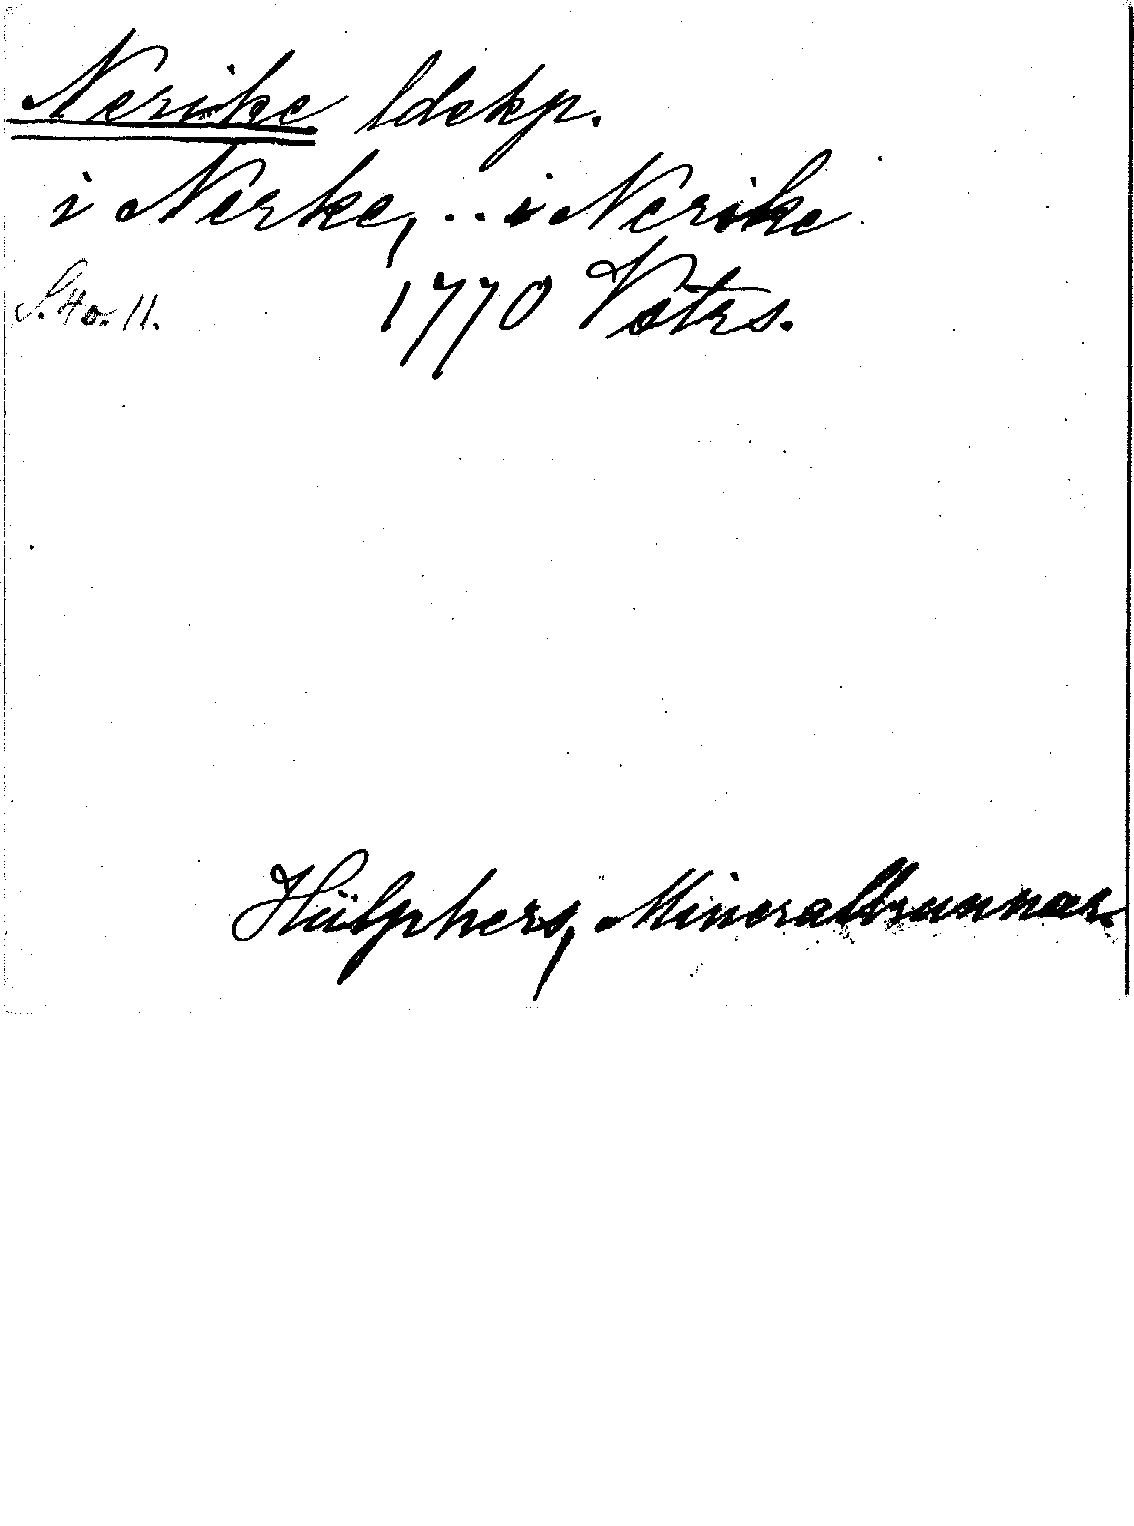 Nerike ldskp.
i Nerke, .. i Nerike
S. 40. 11. 1770 Votrs.
Hülphers, Mineralbrunnar